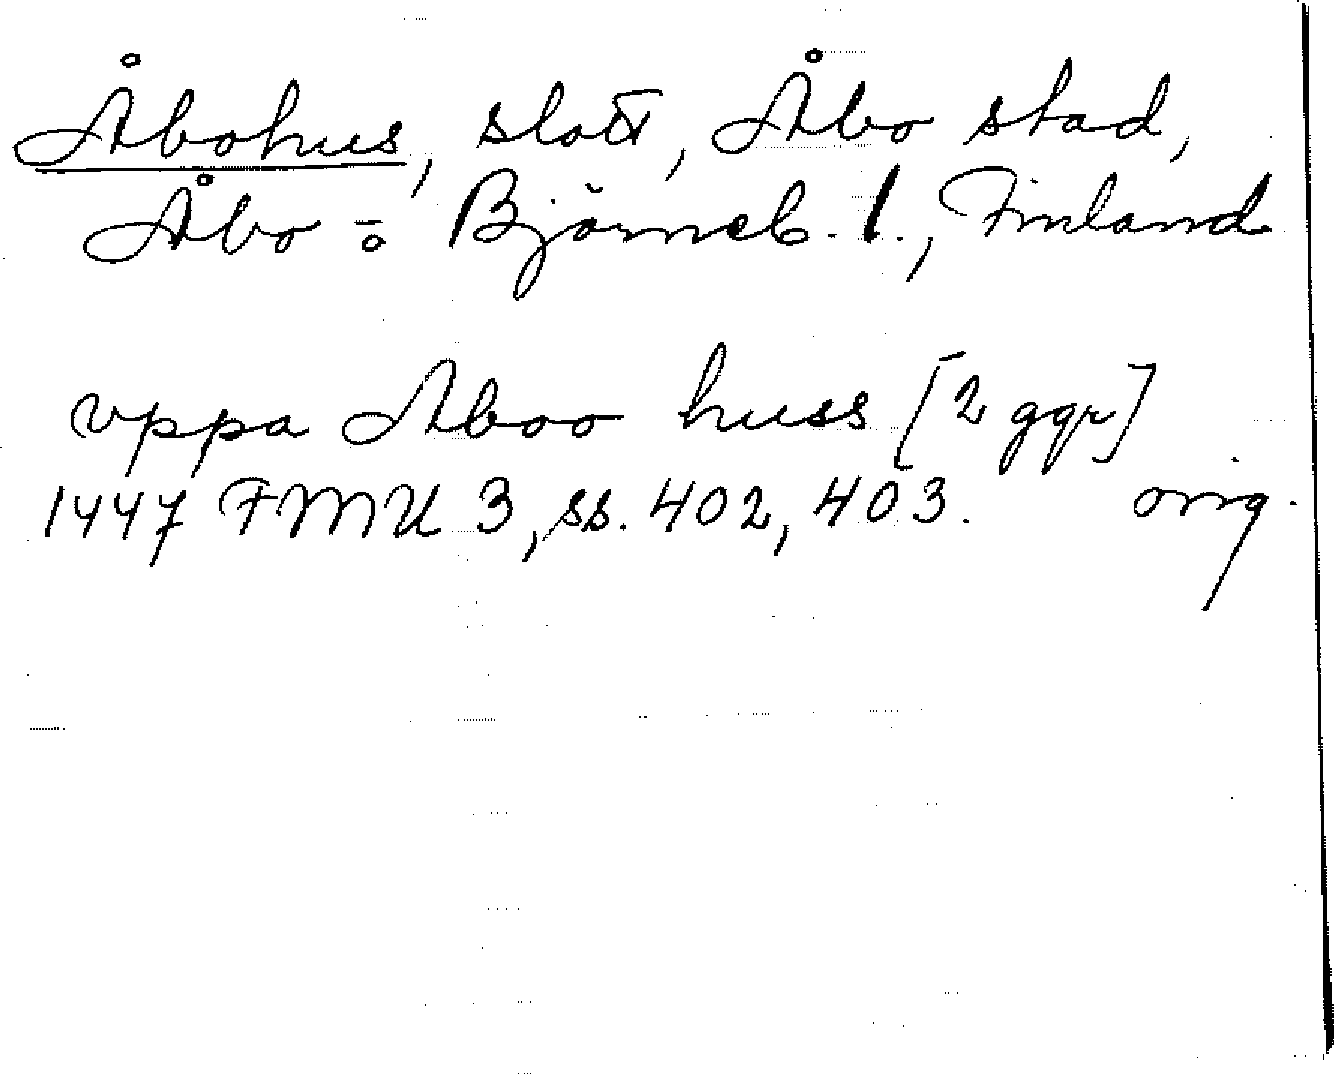 Åbohus, slott, Åbo stad,
Åbo o. Björneb. l., Finland
vppa Aboo huss [2 ggr]
1447 FMU 3, ss. 402, 403. orig.